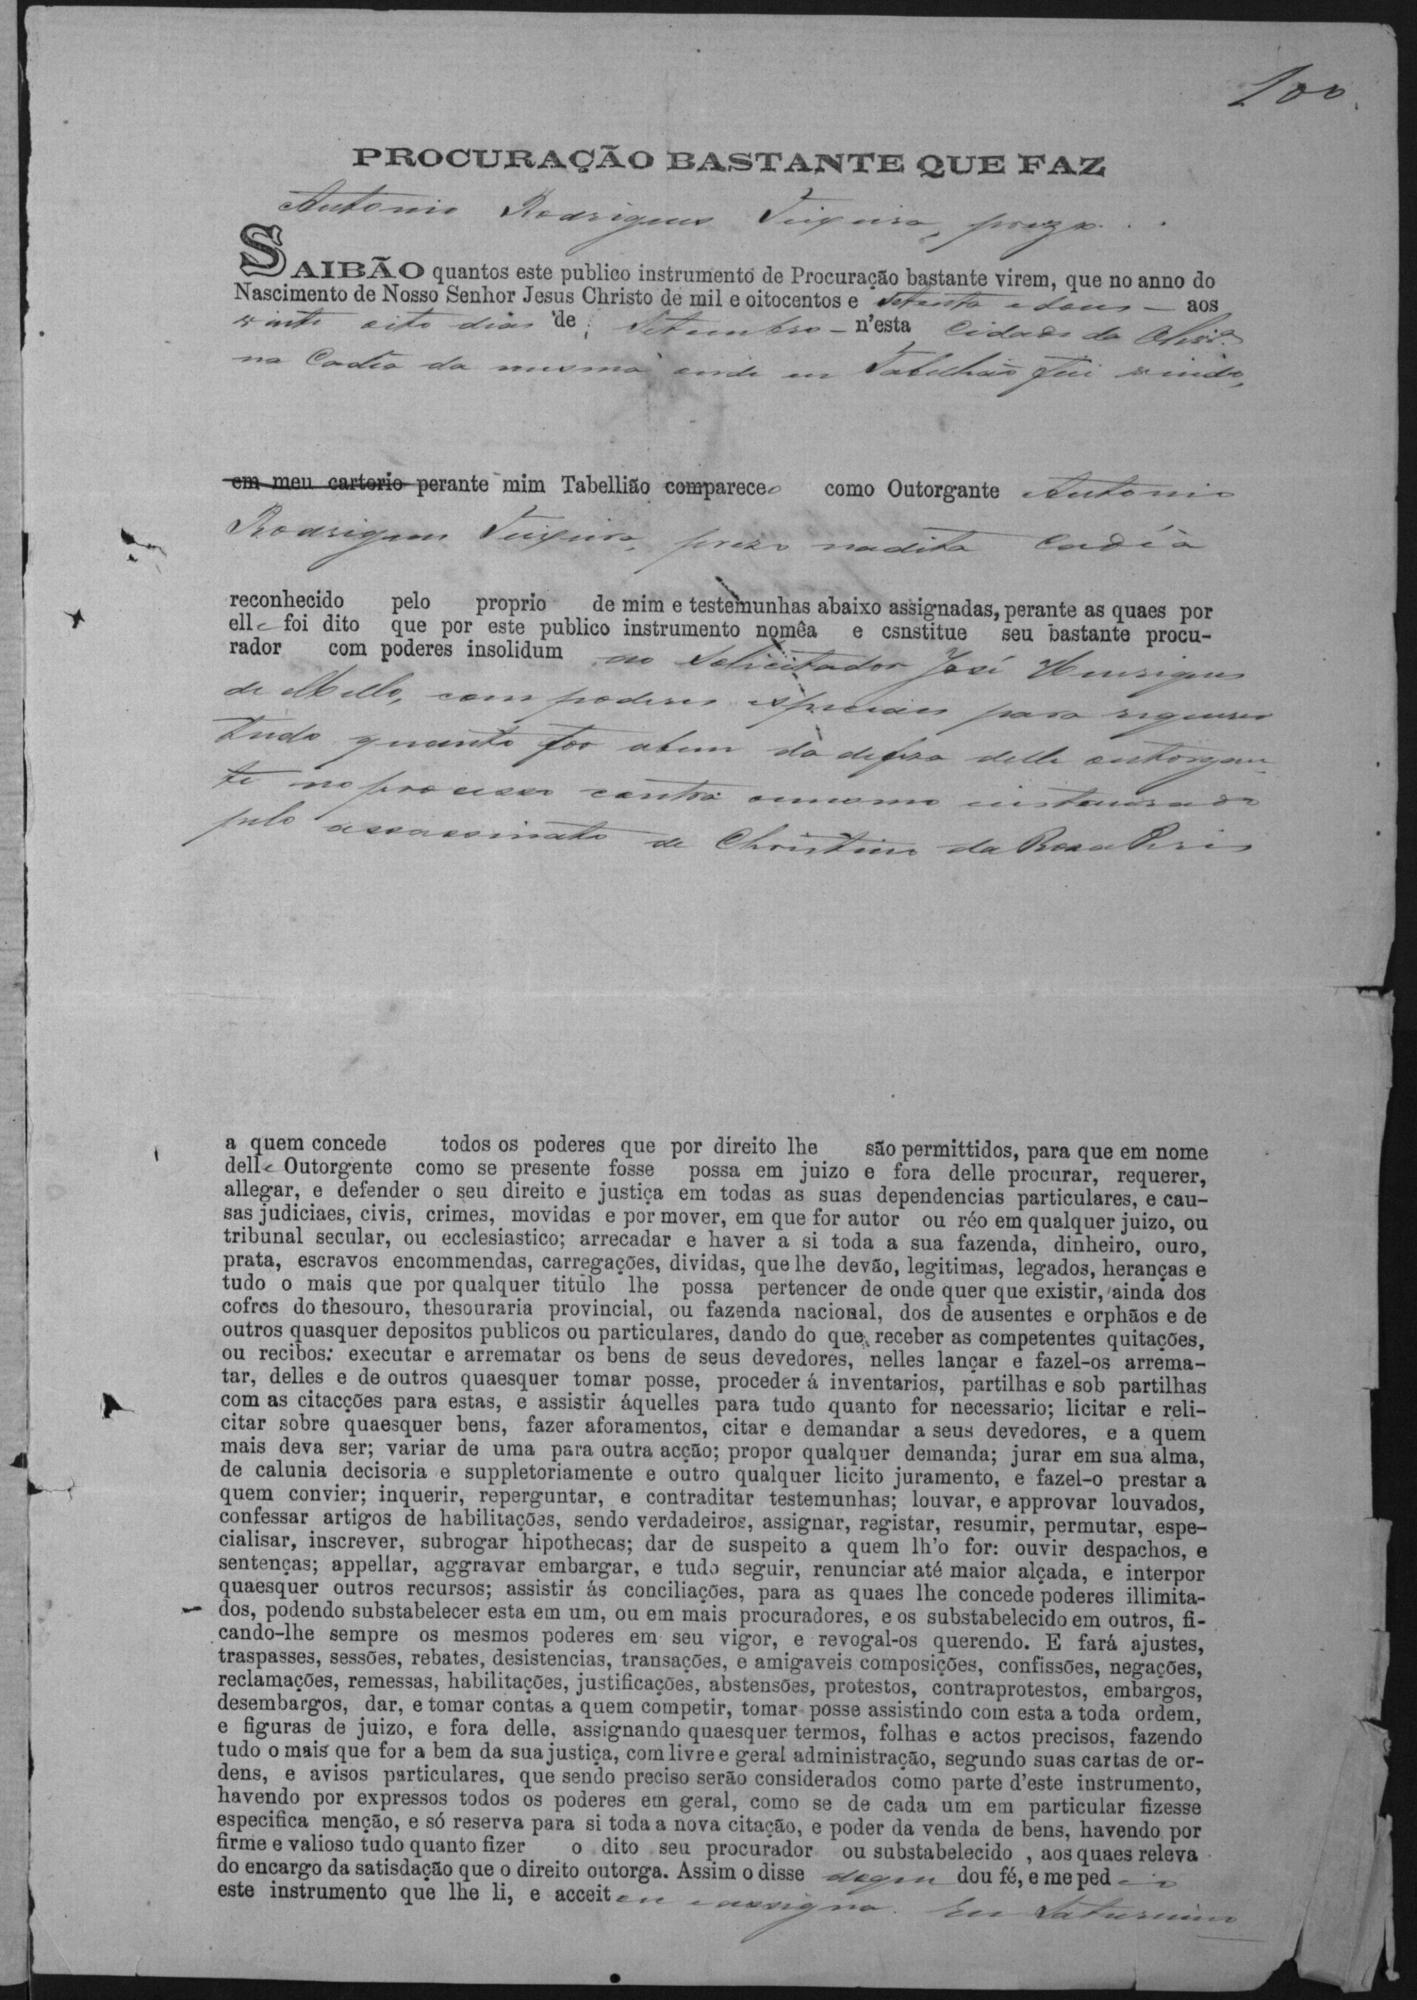 100.
PROCURAÇÃO BASTANTE QUE FAZ
Antonio Rodrigues Teixeira, prezo.
SAIBÃO quantos este publico instrumento de Procuração bastante virem, que no anno do
Nascimento de Nosso Senhor Jesus Christo de mil e oitocentos e setenta e dous — aos
vinte oito dias de Setembro — n'esta Cidade da
na Cadêa da mesma onde eu Tabelhão fui vindo,
em meu cartorio perante mim Tabellião compareceo como Outorgante Antonio
Rodrigues Teixeira, prezo na dita Cadêa
reconhecido pelo proprio de mim e testemunhas abaixo assignadas, perante as quaes por
elle foi dito que por este publico instrumento nomêa e csnstitue seu bastante procu-
rador com poderes insolidum ao Solicitador José Henriques
de Mello, com poderes especiaes para requerer
tudo quanto for abem da defeza delle outorgan-
te no processo contra o mesmo instaurado
pelo assassinato de Christino da Roza Peris
a quem concede todos os poderes que por direito lhe são permittidos, para que em nome
delle Outorgente como se presente fosse possa em juizo e fora delle procurar, requerer,
allegar, e defender o seu direito e justiça em todas as suas dependencias particulares, e cau-
sas judiciaes, civis, crimes, movidas e por mover, em que for autor ou réo em qualquer juizo, ou
tribunal secular, ou ecclesiastico; arrecadar e haver a si toda a sua fazenda, dinheiro, ouro,
prata, escravos encommendas, carregações, dividas, que lhe devão, legitimas, legados, heranças e
tudo o mais que por qualquer titulo lhe possa pertencer de onde quer que existir, ainda dos
cofres do thesouro, thesouraria provincial, ou fazenda nacional, dos de ausentes e orphãos e de
outros quasquer depositos publicos ou particulares, dando do que receber as competentes quitações,
ou recibos: executar e arrematar os bens de seus devedores, nelles lançar e fazel-os arrema-
tar, delles e de outros quaesquer tomar posse, proceder á inventarios, partilhas e sob partilhas
com as citacções para estas, e assistir áquelles para tudo quanto for necessario; licitar e reli-
citar sobre quaesquer bens, fazer aforamentos, citar e demandar a seus devedores, e a quem
mais deva ser; variar de uma para outra acção; propor qualquer demanda; jurar em sua alma,
de calunia decisoria e suppletoriamente e outro qualquer licito juramento, e fazel-o prestar a
quem convier; inquerir, reperguntar, e contraditar testemunhas; louvar, e approvar louvados,
confessar artigos de habilitações, sendo verdadeiros, assignar, registar, resumir, permutar, espe-
cialisar, inscrever, subrogar hipothecas; dar de suspeito a quem lh'o for: ouvir despachos, e
sentenças; appellar, aggravar embargar, e tudo seguir, renunciar até maior alçada, e interpor
quaesquer outros recursos; assistir ás conciliações, para as quaes lhe concede poderes illimita-
dos, podendo substabelecer esta em um, ou em mais procuradores, e os substabelecido em outros, fi-
cando-lhe sempre os mesmos poderes em seu vigor, e revogal-os querendo. E fará ajustes,
traspasses, sessões, rebates, desistencias, transações, e amigaveis composições, confissões, negações,
reclamações, remessas, habilitações, justificações, abstensões, protestos, contraprotestos, embargos,
desembargos, dar, e tomar contas a quem competir, tomar posse assistindo com esta a toda ordem,
e figuras de juizo, e fora delle, assignando quaesquer termos, folhas e actos precisos, fazendo
tudo o mais que for a bem da sua justiça, com livre e geral administração, segundo suas cartas de or-
dens, e avisos particulares, que sendo preciso serão considerados como parte d'este instrumento,
havendo por expressos todos os poderes em geral, como se de cada um em particular fizesse
especifica menção, e só reserva para si toda a nova citação, e poder da venda de bens, havendo por
firme e valioso tudo quanto fizer o dito seu procurador ou substabelecido , aos quaes releva
do encargo da satisdação que o direito outorga. Assim o disse doque dou fé, e me pedio
este instrumento que lhe li, e acceitou e assigna. Eu Saturnino